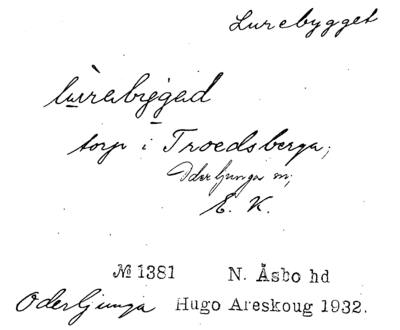 Lurebygget
lùrabyged
torp i Troedsberga;
Oderljunga m;
E. K.
№ 1381 N. Åsbo hd
Oderljunga Hugo Areskoug 1932.